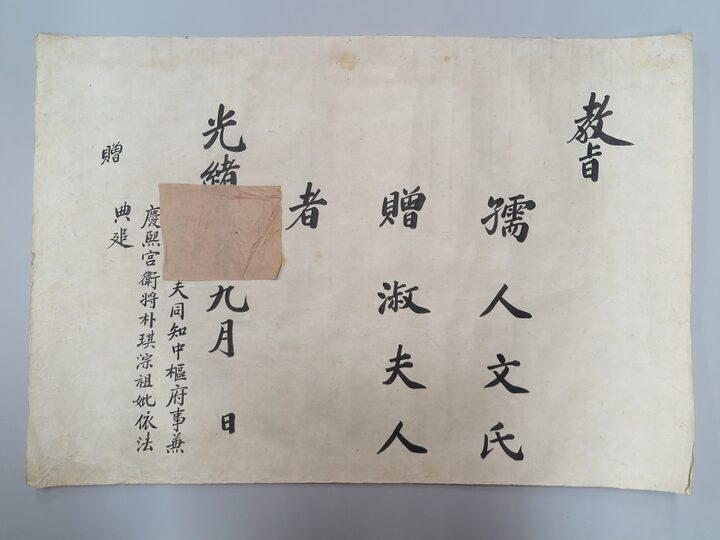 教旨
孺人文氏
贈淑夫人
者
光緒 九月 日
夫同知中樞府事兼
慶熙宮衛將朴琪淙祖妣依法
典追
贈